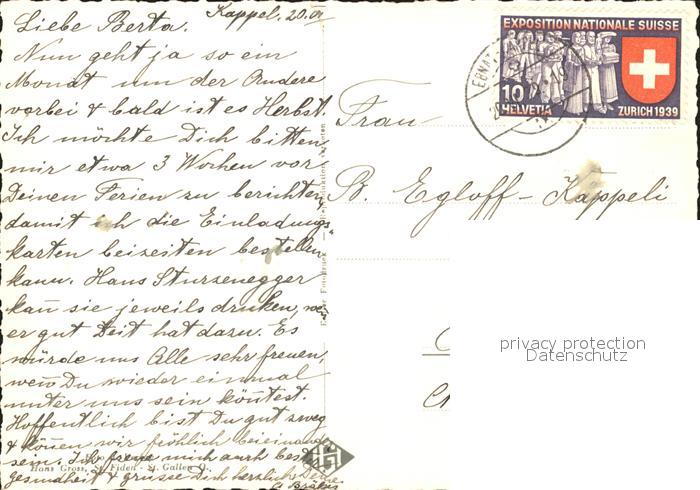 Kappel, 20.
Liebe Berta.
Nun geht ja so ein
Monat um der Andere
vorbei & bald ist es Herbst.
Ich möchte Dich bitten,
mir etwa 3 Wochen vor
Deinen Ferien zu berichten,
damit ich die Einladungs-
karten beizeiten bestellen
kann. Hans Sturzenegger
kan̄ sie jeweils druken, wen̄
er gut Zeit hat dazu. Es
würde uns Alle sehr freuen,
wen̄ Du wieder einmal
unter uns sein kön̄test.
Hoffentlich bist Du gut zweg
& kön̄en wir fröhlich beieinand
sein. Ich freue mich auch beste
Gesundheit & grüsse Dich herzlich Deine
Hans Gross, St. Fiden - St. Gallen O.
EXPOSITION NATIONALE SUISSE
10
HELVETIA
ZURICH 1939
EBNAT
Frau
B. Egloff-Käppeli
privacy protection
Datenschutz